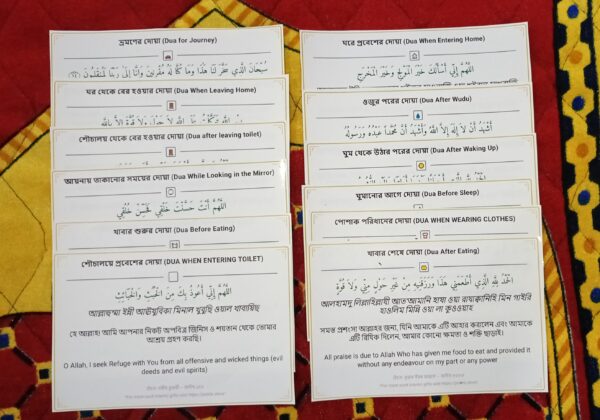 ভ্রমণের দোয়া (Dua for Journey)
سُبْحَانَ الَّذِي سَخَّرَ لَنَا هَذَا وَمَا كُنَّا لَهُ مُقْرِنِينَ وَإِنَّا إِلَى رَبِّنَا لَمُنْقَلِبُونَ
ঘর থেকে বের হওয়ার দোয়া (Dua When Leaving Home)
শৌচালয় থেকে বের হওয়ার দোয়া (Dua after leaving toilet)
আয়নায় তাকানোর সময়ের দোয়া (Dua While Looking in the Mirror)
اللَّهُمَّ أَنْتَ حَسَّنْتَ خَلْقِي فَحَسِّنْ خُلُقِي
খাবার শুরুর দোয়া (Dua Before Eating)
শৌচালয়ে প্রবেশের দোয়া (DUA WHEN ENTERING TOILET)
اللَّهُمَّ إِنِّي أَعُوذُ بِكَ مِنَ الْخُبُثِ وَالْخَبَائِثِ
আল্লাহুম্মা ইন্নী আউযুবিকা মিনাল খুবুছি ওয়াল খাবায়িছ
হে আল্লাহ! আমি আপনার নিকট অপবিত্র জিনিস ও শয়তান থেকে তোমার
আশ্রয় গ্রহণ করছি।
O Allah, I seek Refuge with You from all offensive and wicked things (evil
deeds and evil spirits)
ঘরে প্রবেশের দোয়া (Dua When Entering Home)
اللَّهُمَّ إِنِّي أَسْأَلُكَ خَيْرَ الْمَوْلِجِ وَخَيْرَ الْمَخْرَجِ
ওজুর পরের দোয়া (Dua After Wudu)
أَشْهَدُ أَنْ لَا إِلَهَ إِلَّا اللَّهُ وَأَشْهَدُ أَنَّ مُحَمَّدًا عَبْدُهُ وَرَسُولُهُ
ঘুম থেকে উঠার পরের দোয়া (Dua After Waking Up)
ঘুমানোর আগে দোয়া (Dua Before Sleep)
পোশাক পরিধানের দোয়া (DUA WHEN WEARING CLOTHES)
খাবার শেষে দোয়া (Dua After Eating)
الْحَمْدُ لِلَّهِ الَّذِي أَطْعَمَنِي هَذَا وَرَزَقَنِيهِ مِنْ غَيْرِ حَوْلٍ مِنِّي وَلَا قُوَّةٍ
আলহামদু লিল্লাহিল্লাযী আত'আমানি হাযা ওয়া রাযাকানিহি মিন গাইরি
হাওলিম মিন্নি ওয়া লা কুওওয়াহ
সমস্ত প্রশংসা আল্লাহর জন্য, যিনি আমাকে এটি আহার করালেন এবং আমাকে
এটি রিযিক দিলেন, আমার কোনো ক্ষমতা ও শক্তি ছাড়াই।
All praise is due to Allah Who has given me food to eat and provided it
without any endeavour on my part or any power